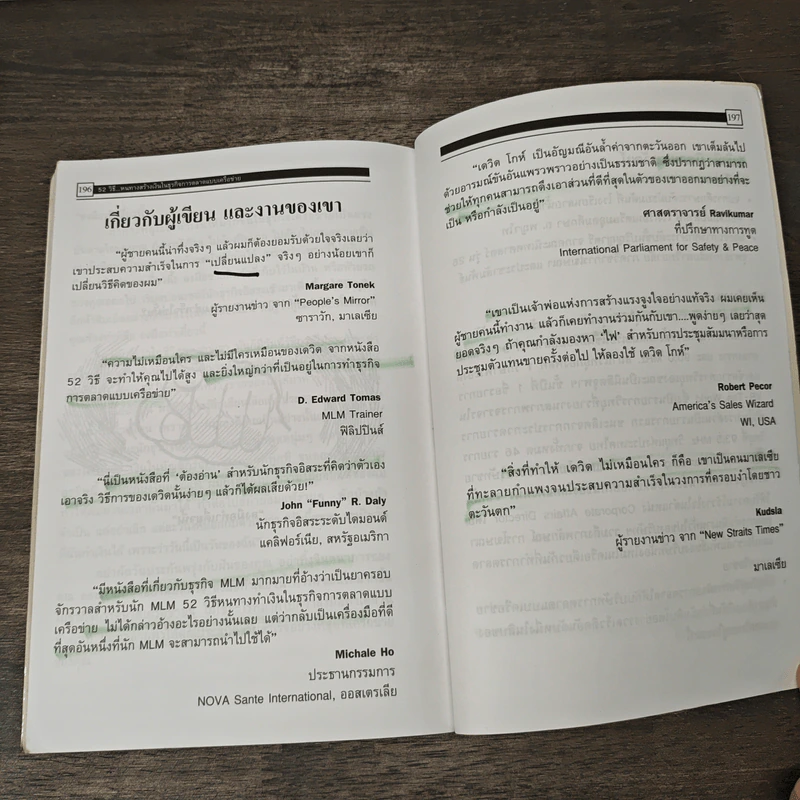 196
52 วิธี...หนทางสร้างเงินในธุรกิจการตลาดแบบเครือข่าย
เกี่ยวกับผู้เขียน และงานของเขา
“ผู้ชายคนนี้น่าทึ่งจริงๆ แล้วผมก็ต้องยอมรับด้วยใจจริงเลยว่า
เขาประสบความสำเร็จในการ “เปลี่ยนแปลง” จริงๆ อย่างน้อยเขาก็
เปลี่ยนวิธีคิดของผม”
Margare Tonek
ผู้รายงานข่าว จาก “People's Mirror”
ซาราวัก, มาเลเซีย
“ความไม่เหมือนใคร และไม่มีใครเหมือนของเดวิด จากหนังสือ
52 วิธี จะทำให้คุณไปได้สูง และยิ่งใหญ่กว่าที่เป็นอยู่ในการทำธุรกิจ
การตลาดแบบเครือข่าย”
D. Edward Tomas
MLM Trainer
ฟิลิปปินส์
“นี่เป็นหนังสือที่ ‘ต้องอ่าน’ สำหรับนักธุรกิจอิสระที่คิดว่าตัวเอง
เอาจริง วิธีการของเดวิดนั้นง่ายๆ แล้วก็ได้ผลเสียด้วย!”
John “Funny” R. Daly
นักธุรกิจอิสระระดับไดมอนด์
แคลิฟอร์เนีย, สหรัฐอเมริกา
“มีหนังสือที่เกี่ยวกับธุรกิจ MLM มากมายที่อ้างว่าเป็นยาครอบ
จักรวาลสำหรับนัก MLM 52 วิธีหนทางทำเงินในธุรกิจการตลาดแบบ
เครือข่าย ไม่ได้กล่าวอ้างอะไรอย่างนั้นเลย แต่ว่ากลับเป็นเครื่องมือที่ดี
ที่สุดอันหนึ่งที่นัก MLM จะสามารถนำไปใช้ได้”
Michale Ho
ประธานกรรมการ
NOVA Sante International, ออสเตรเลีย
197
“เดวิด โกห์ เป็นอัญมณีอันล้ำค่าจากตะวันออก เขาเต็มล้นไป
ด้วยอารมณ์ขันอันแพรวพราวอย่างเป็นธรรมชาติ ซึ่งปรากฏว่าสามารถ
ช่วยให้ทุกคนสามารถดึงเอาส่วนที่ดีที่สุดในตัวของเขาออกมาอย่างที่จะ
เป็น หรือกำลังเป็นอยู่”
ศาสตราจารย์ Ravikumar
ที่ปรึกษาทางการทูต
International Parliament for Safety & Peace
“เขาเป็นเจ้าพ่อแห่งการสร้างแรงจูงใจอย่างแท้จริง ผมเคยเห็น
ผู้ชายคนนี้ทำงาน แล้วก็เคยทำงานร่วมกันกับเขา....พูดง่ายๆ เลยว่าสุด
ยอดจริงๆ ถ้าคุณกำลังมองหา ‘ไฟ’ สำหรับการประชุมสัมมนาหรือการ
ประชุมตัวแทนขายครั้งต่อไป ให้ลองใช้ เดวิด โกห์”
Robert Pecor
America's Sales Wizard
WI, USA
“สิ่งที่ทำให้ เดวิด ไม่เหมือนใคร ก็คือ เขาเป็นคนมาเลเซีย
ที่ทะลายกำแพงจนประสบความสำเร็จในวงการที่ครอบงำโดยชาว
ตะวันตก”
Kudsia
ผู้รายงานข่าว จาก “New Straits Times”
มาเลเซีย